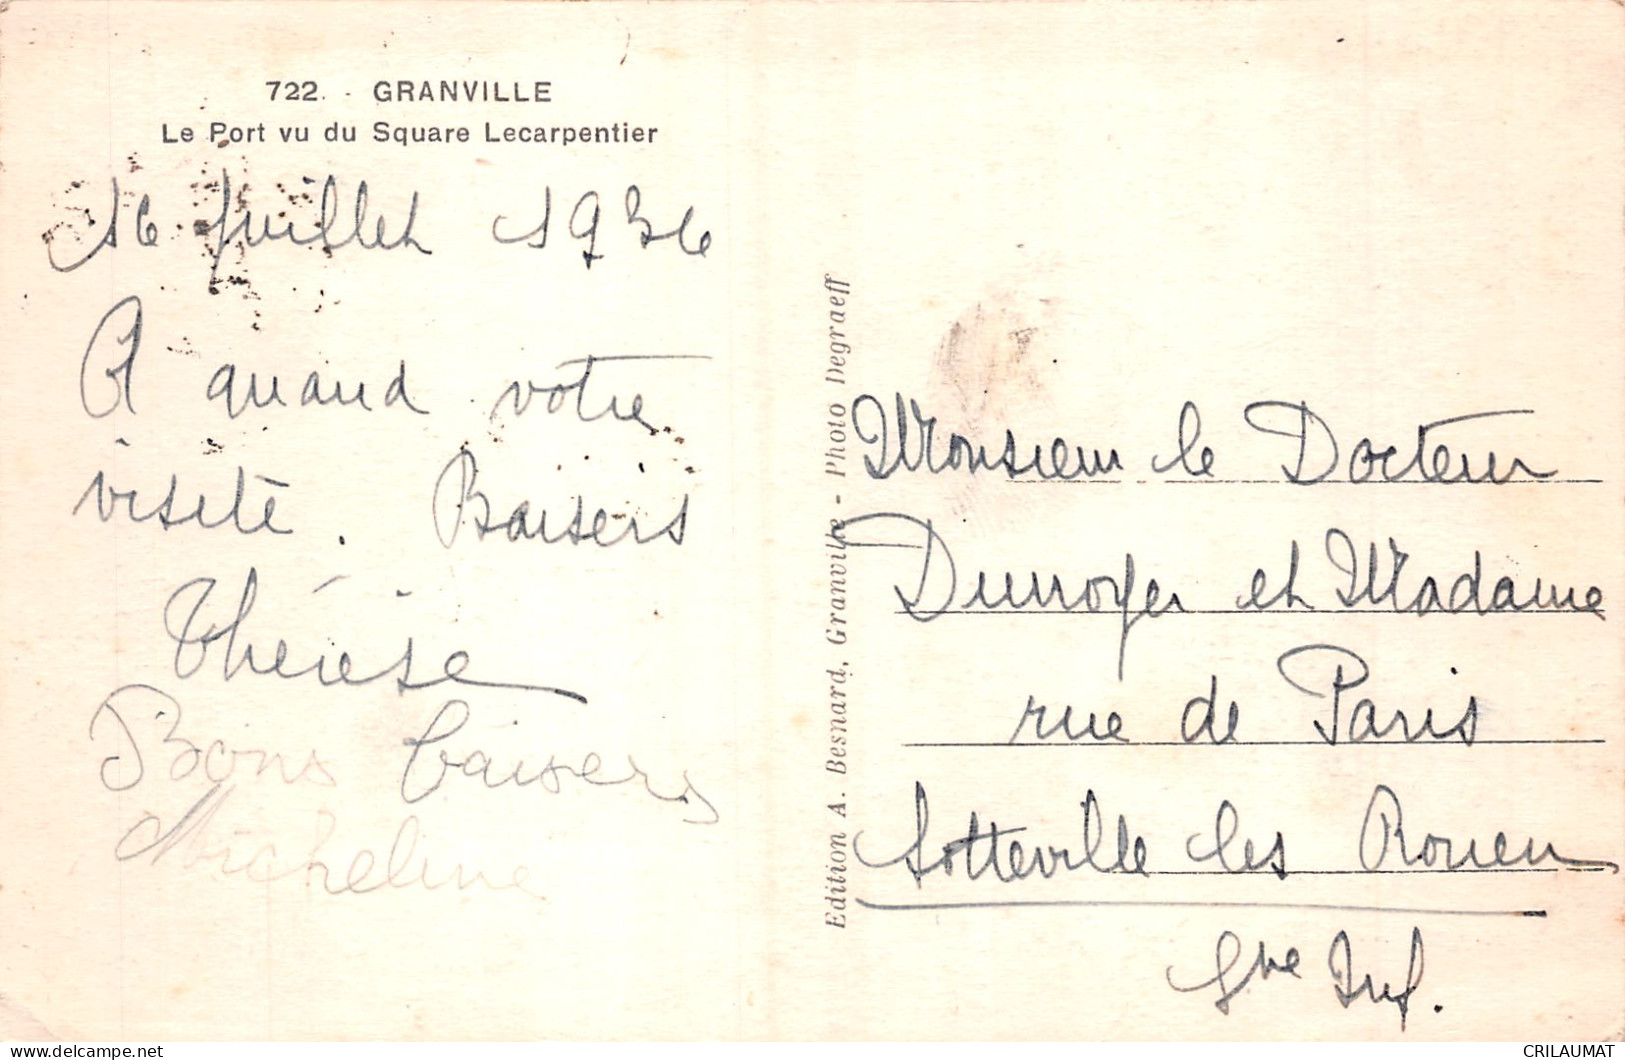 722. - GRANVILLE
Le Port vu du Square Lecarpentier
16 Juillet 1936
A quand votre
visite. Baisers
Thérèse
Bons baisers
Micheline
Edition A. Besnard, Granville - Photo Degraeff
Monsieur le Docteur
Durroyer et Madame
rue de Paris
Sotteville les Rouen
Sne Inf.
delcampe.net
CRILAUMAT